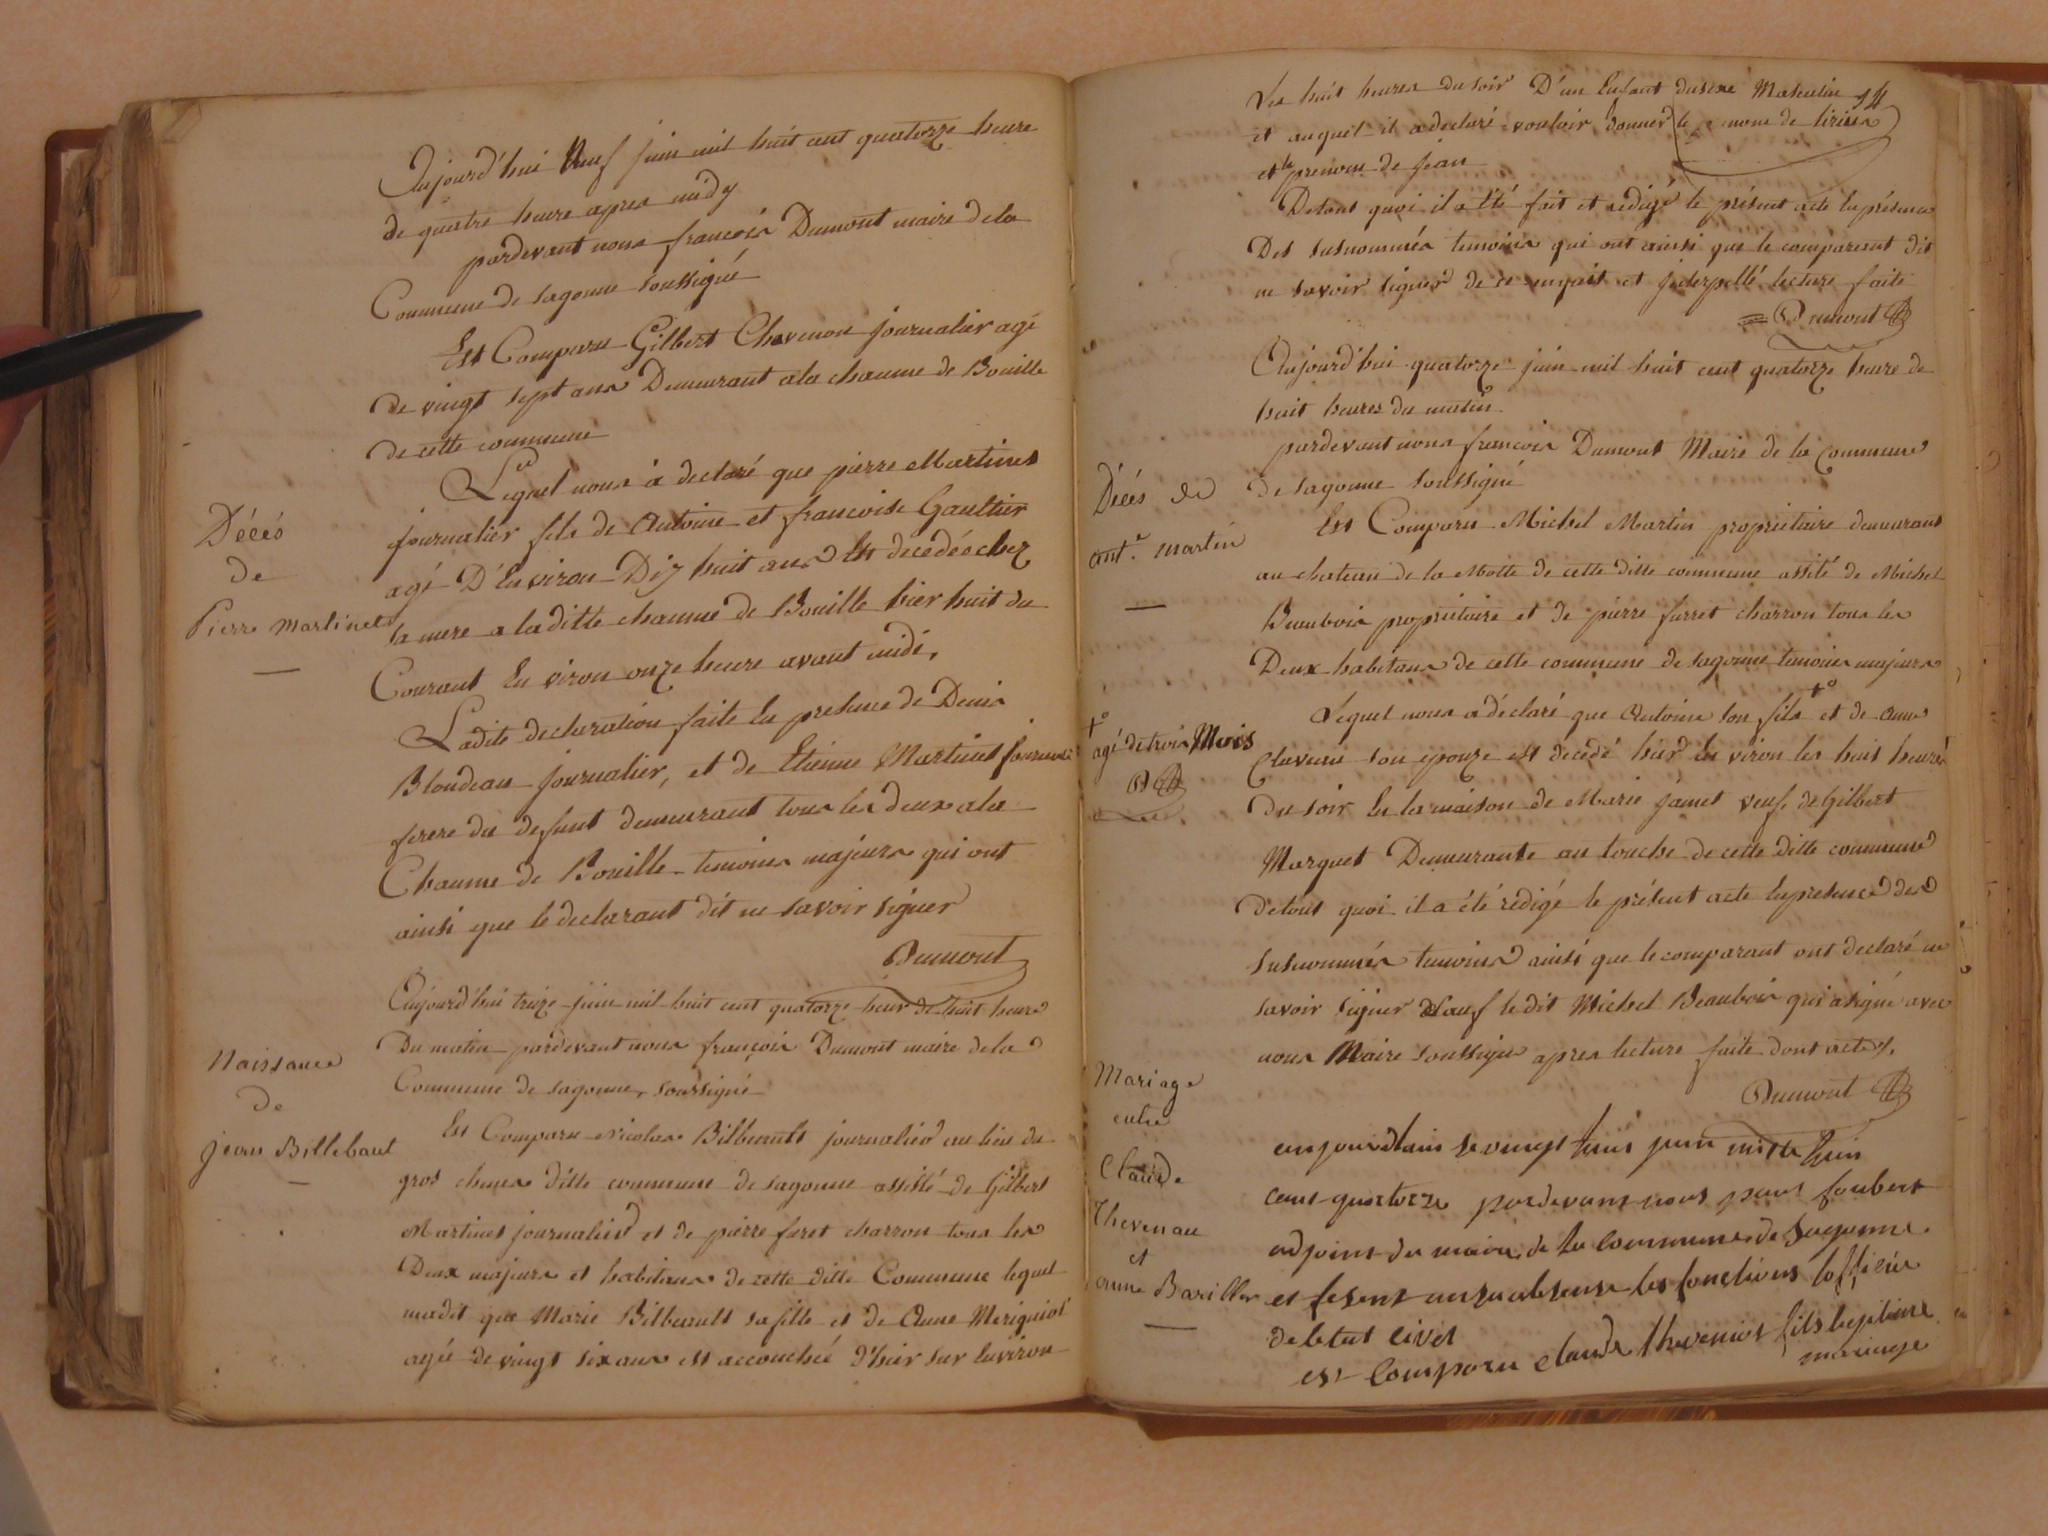 Aujourd'hui Neuf juin mil huit cent quatorze heure
de quatre heure apres midy
pardevant nous françois Dumont maire de la
Commune de sagonne soussigné
Est Comparu Gilbert Chavenon journalier agé
de vingt sept ans Demeurant ala chaume de Bouille
de cette commune
Lequel nous à declaré que pierre Martinet
journalier fils de Antoine et francoise Gaultier
agé D'Environ Dix huit ans Est decedé chez
sa mere a la ditte chaume de Bouille hier huit du
Courant En viron onze heure avant midi,
La dite declaration faite En presence de Denis
Blondeau journalier, et de Etienne Martinet journalier
frere du defunt demeurant tous les deux ala
Chaume de Bouille temoins majeurs qui ont
ainsi que le declarant dit ne savoir signer
Dumont
Décés
de
Pierre Martinet
Aujourd'hui treize juin mil huit cent quatorze heur de huit heure
Du matin pardevant nous françois Dumont maire de la
Commune de sagonne, soussigné
Est Comparu Nicolas Bilbeault journalier au lieu du
gros chene ditte commune de sagonne assisté de Gilbert
Martinet journalier et de pierre feret charron tous les
Deux majeurs et habitans de cette ditte Commune lequel
ma dit que Marie Bilbeault sa fille et de Anne Meriguiot
agée de vingt six ans est accouchée d'hier sur Environ
Naissance
de
jean Billebaut
Les huit heures du soir D'un Enfant du sexe Masculin 14
et auquel il a declaré vouloir donner le nome de
et le prenom de jean
De tout quoi il a été fait et redigé le présent acte En présence
Des susnommés temoins qui ont ainsi que le comparant dit
ne savoir signer de ce enquit et jnterpellé lecture faite
Dumont
Aujourd'hui quatorze juin mil huit cent quatorze heure de
huit heures du matin
pardevant nous francois Dumont Maire de la Commune
de sagonne soussigné
Est Comparu Michel Martin proprietaire demeurant
au chateau de la Motte de cette ditte commune assité de Michel
Beaubois propriétaire et de pierre furret charron tous les
Deux habitans de cette commune de sagonne temoins majeurs
Lequel nous a déclaré que Antoine son fils +° et de Anne
Clavenu son epouze est decédé hier En viron les huit heures
du soir En la maison de Marie jamet veuf. de Gilbert
Marquet Demeurante au touche de cette ditte commune
De tout quoi il a été rédigé le présent acte En presence des
susnommés temoins ainsi que le comparant ont declaré ne
savoir signer sauf le dit Michel Beaubois qui a signé avec
nous Maire soussigne apres lecture faite dont acte
Dumont
Décés de
Ant.e Martin
+°
agé de trois Mois
D
Mariage
entre
Claude
Thevenau
et
Anne Bariller
aujourdhui le vingt huis juin mille huis
cens quatorze pardevans nous paul foubert
adjoins du maire de la commune de Sagonne
et fesent an sa absense les fonctions loffisier
de letat civel
est comparu claude thevenios fils legitime
mariage